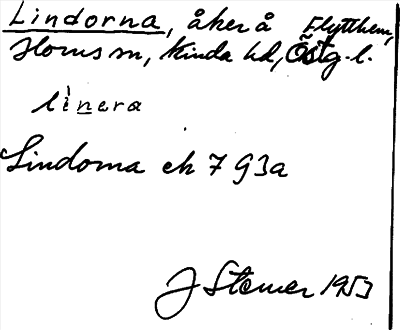 Lindorna, åker å Flytthem,
Horns sn, Kinda hd, Östg. l.
lìnera
Lindorna ek 7 G3a
J Sterner 1953